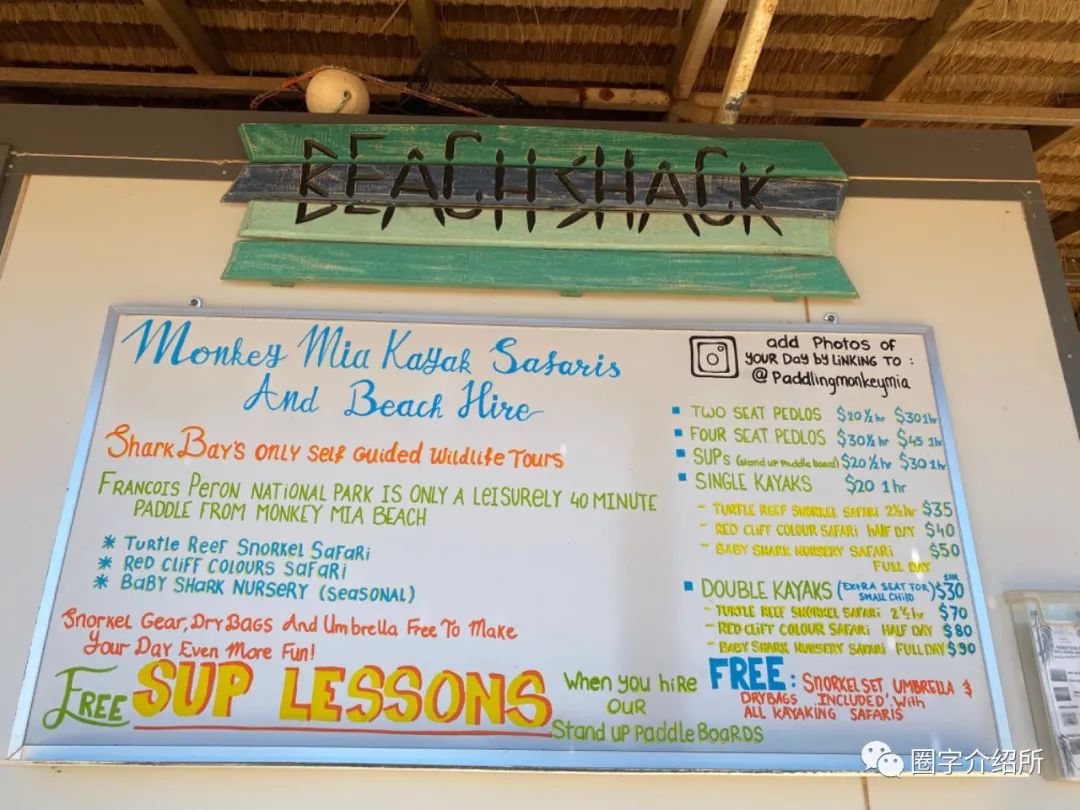 BEACH SHACK
Monkey Mia Kayak Safaris
And Beach Hire
Shark Bay's only self guided wildlife tours
Francois Peron national park is only a leisurely 40 minute
paddle from monkey mia beach
* Turtle Reef Snorkel Safari
* Red Cliff Colours Safari
* Baby Shark Nursery (seasonal)
Snorkel Gear, Dry Bags And Umbrella Free To Make
Your Day Even More Fun!
Free SUP LESSONS
When you hire
our
Stand up paddle boards
add Photos of
your day by linking to :
@Paddlingmonkeymia
TWO SEAT PEDLOS $20 ½ hr $30 1hr
FOUR SEAT PEDLOS $30 ½ hr $45 1hr
SUPs (stand up paddle board) $20 ½ hr $30 1hr
SINGLE KAYAKS $20 1hr
- TURTLE REEF SNORKEL SAFARI 2½ hr $35
- RED CLIFF COLOUR SAFARI HALF DAY $40
- BABY SHARK NURSERY SAFARI $50
FULL DAY
DOUBLE KAYAKS (EXTRA SEAT FOR SMALL CHILD) 1HR $30
- TURTLE REEF SNORKEL SAFARI 2½ hr $70
- RED CLIFF COLOUR SAFARI HALF DAY $80
- BABY SHARK NURSERY SAFARI FULL DAY $90
FREE: SNORKEL SET UMBRELLA &
DRYBAGS INCLUDED With
ALL KAYAKING SAFARIS
圈字介绍所